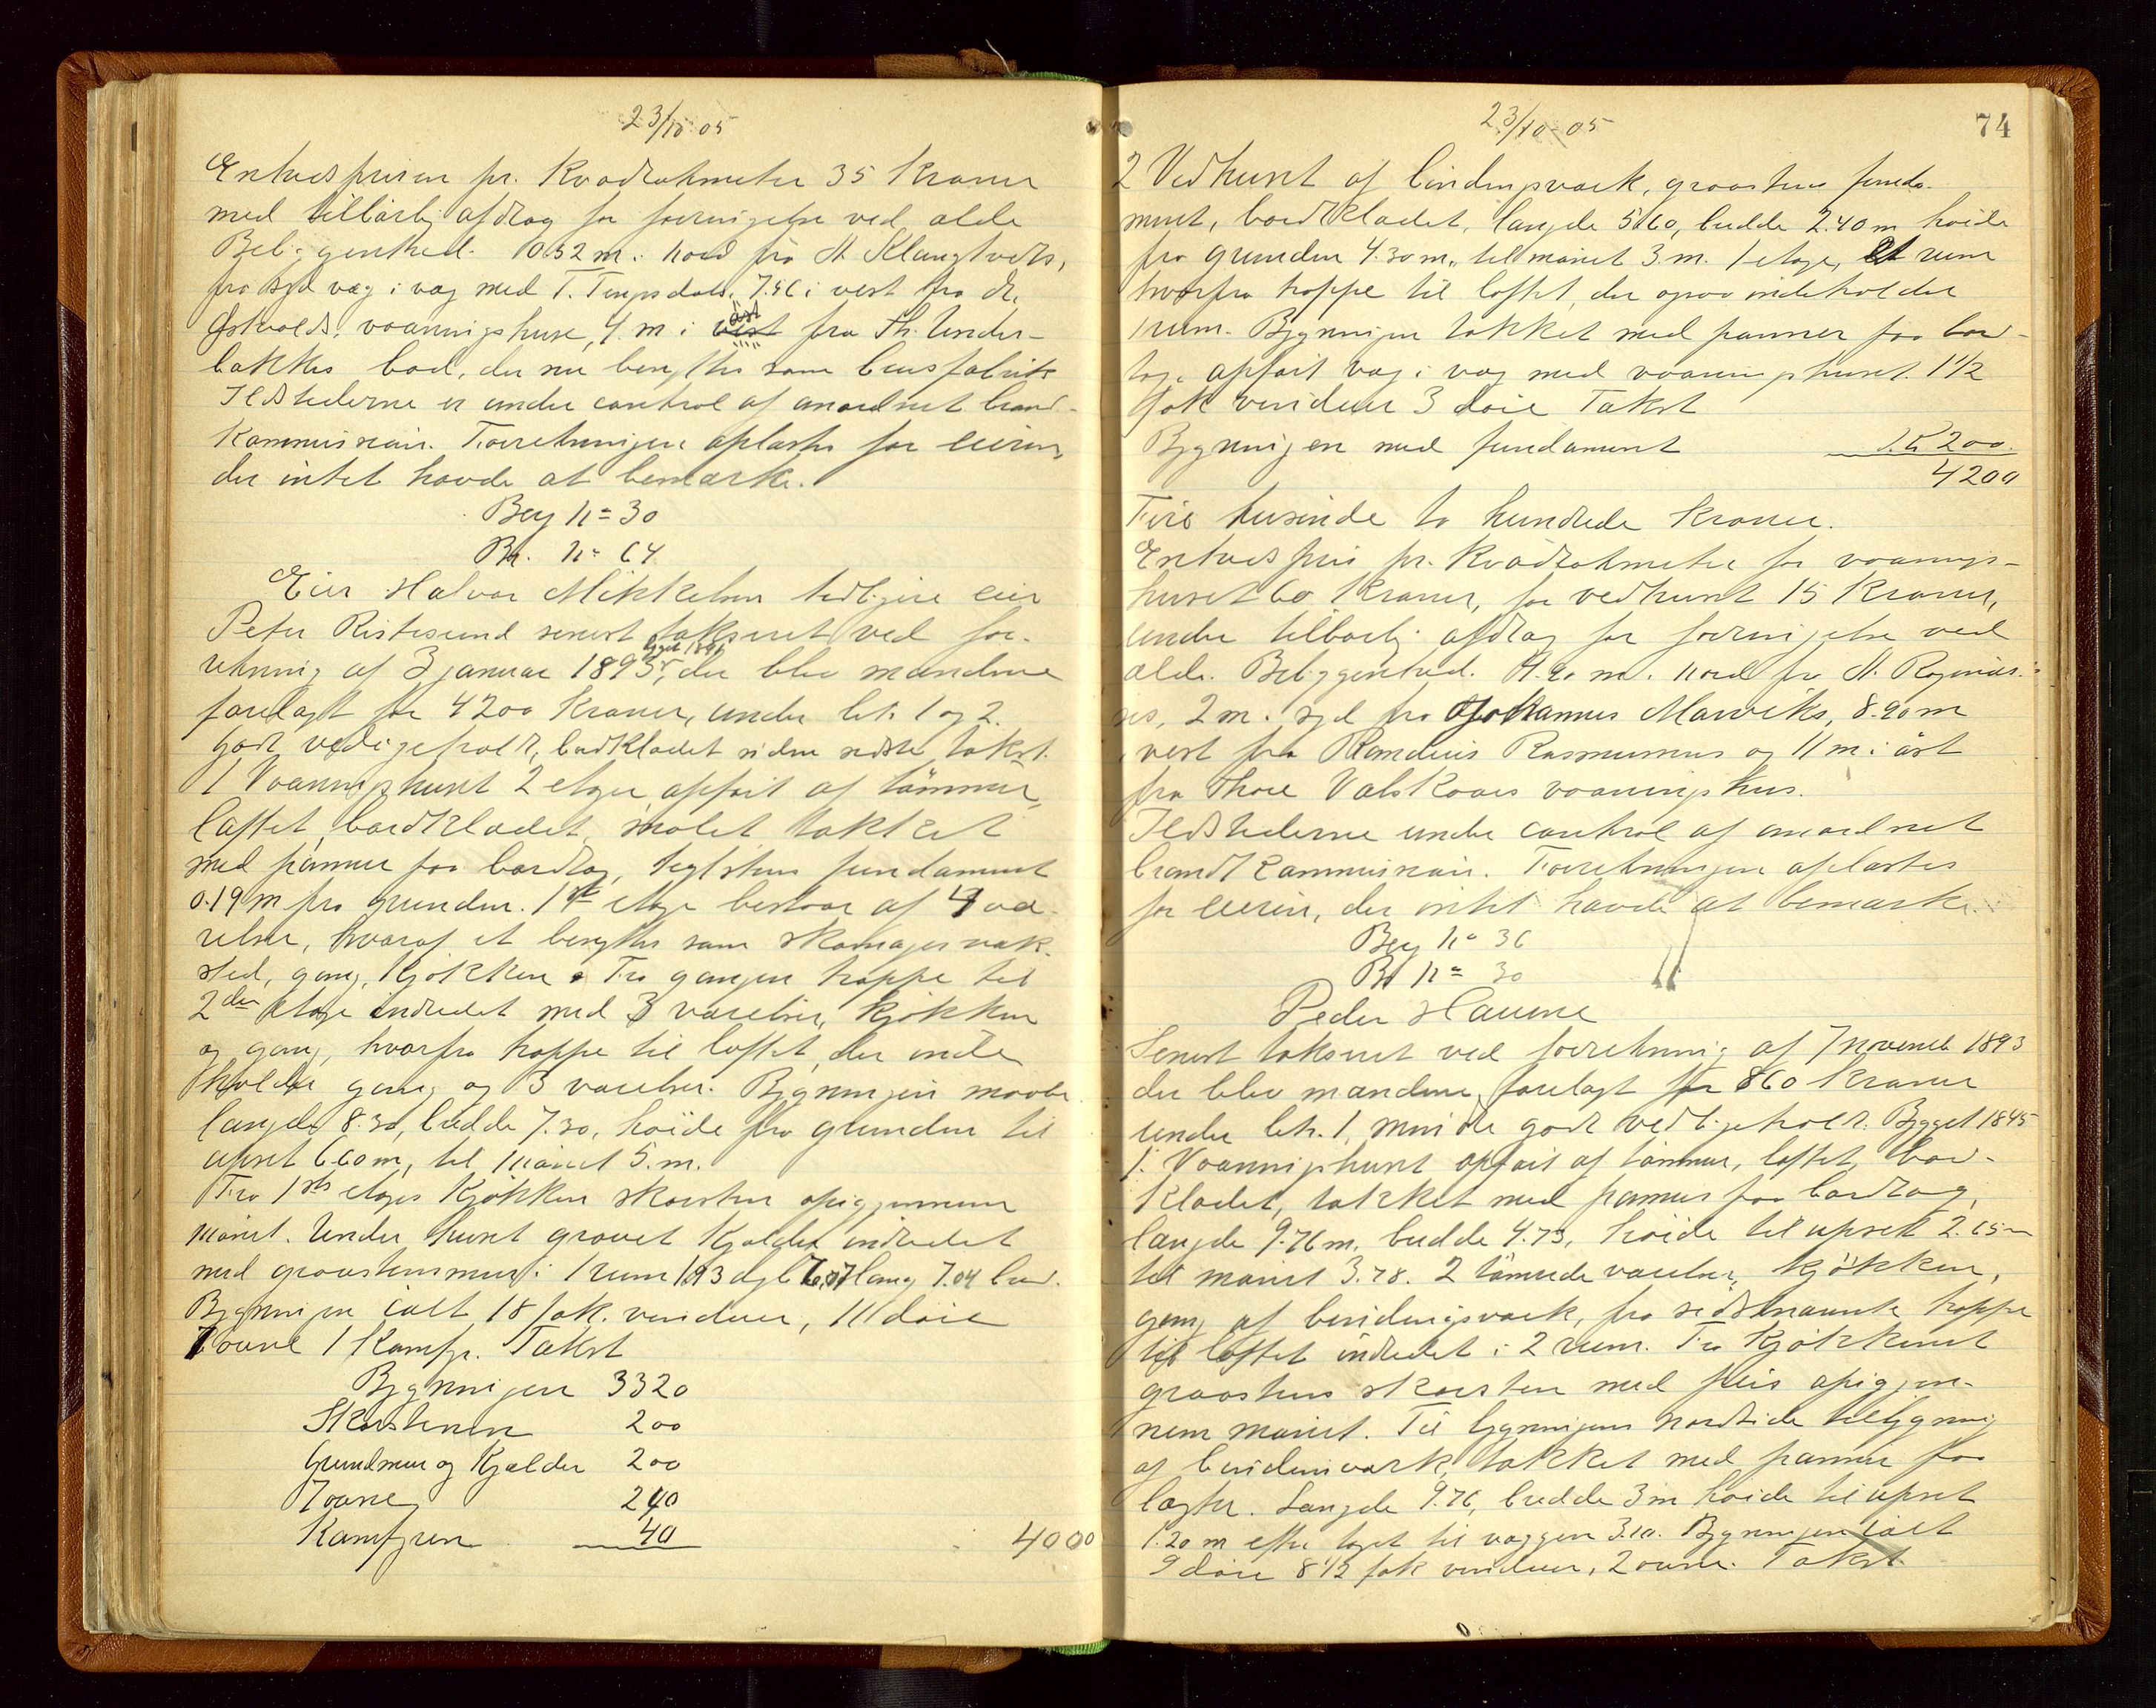 23/10 05
Enhedsprisen pr. Kvadratmeter 35 Kroner
med tilbørlig afdrag for forringelse ved alde
Beliggenhed. 10.52 m. nord fra
fra syd væg i væg med T. 7.46 i vest fra
vaaningshuse, 4 m i øst fra Th. Under-
bakkes bod, der nu benyttes som brusfabrik
Ildstederne er under control af anordnet brand-
kommissair. Forretningen oplæstes for eieren,
der intet havde at bemærke.
Bey No 30
Br. No 64
Eier Halvor Mikkelsen tidligere eier
Peter Ristesund senest takseret ved for-
bygget 1891
retning af 3 januar 1895, der blev mændene
forelagt for 4200 Kroner, under litr. 1 og 2.
godt vedligeholdt, bordklædet siden sidste takst.
1 Vaaningshuset 2 etager opført af tømmer,
loftet, bordklædet, malet takket
med panner paa bordtag, teglstens fundament
0.19 m fra grunden. 1ste etage bestaar af 4 væ-
relser, hvoraf et benyttes som skomagerværk-
sted, gang, kjøkken. Fra gangen trappe til
2den etage indredet med 3 værelser, kjøkken
og gang, hvorfra trappe til loftet, der inde
holder gang og 3 værelser. Bygningen maaler
længde 8.30, bredde 7.30, høide fra grunden til
upset 6.60 m, til mønet 5. m.
Fra 1ste etages kjøkken skorsten opigjennem
mønet. Under huset gravet Kjælder indredet
med graastensmur i 1 rum 1.93 dyb 7.07 lang 7.04 bred.
Bygningen ialt 18 fak. vinduer, 11 døre
7 ovne 1 Komfyr. Takst
Bygningen 3320
Skorstenen 200
Grundmur og Kjælder 200
7 ovne 240
Komfyren 40 4000
23/10-05 74
2 Vedhuset af bindingsværk, graastens funda-
ment, bordklædet, længde 5.60, bredde 2.40 m høide
fra grunden 4.30 m, til mønet 3. m. 1 etage, et rum
hvorfra trappe til loftet, der ogsaa indeholder
1 rum. Bygningen takket med panner paa bord-
tag. opført væg i væg med vaaningshuset. 1 1/2
fak vinduer 3 døre Takst
Bygningen med fundament 200.
4200
Fire tusinde to hundrede Kroner.
Enhedspris pr. Kvadratmeter for vaanings-
huset 60 Kroner, for vedhuset 15 Kroner,
under tilbørlig afdrag for forringelse ved
alde. Beliggenhed. m. nord fra
2 m. syd fra Johannes Marviks, 8.90 m
i vest fra Rasmussens og 11 m i øst
fra Thore Valskaars vaaningshus.
Ildstederne under control af anordnet
brandtkommissair. Forretningen oplæstes
for eieren, der intet havde at bemærke.
Bey No 36
Br No 30
Peder Haune
Senest takseret ved forretning af 7 november 1893
der blev mændene forelagt for 860 Kroner
under litr. 1, mindre godt vedligeholdt. Bygget 1845
1. Vaaningshuset opført af tømmer, loftet, bord-
klædet, takket med panner paa bordtag,
længde 9.76 m, bredde 4.73, høide til upset 2.65 m
til mønet 3.78. 2 tømrede værelser, kjøkken,
gang af bindingsværk, fra sidstnævnte trappe
til loftet indredet i 2 rum. Fra Kjøkkenet
graastens skorsten med peis opigjen-
nem mønet. Til bygningens nordside tilbygning
af bindinværk, takket med panner paa
lægter. Længde 9.76, bredde 3 m høide til upset
1.20 m efter taget til væggen 3.10. Bygningen ialt
9 døre 8 1/2 fak vinduer, 2 ovne. Takst